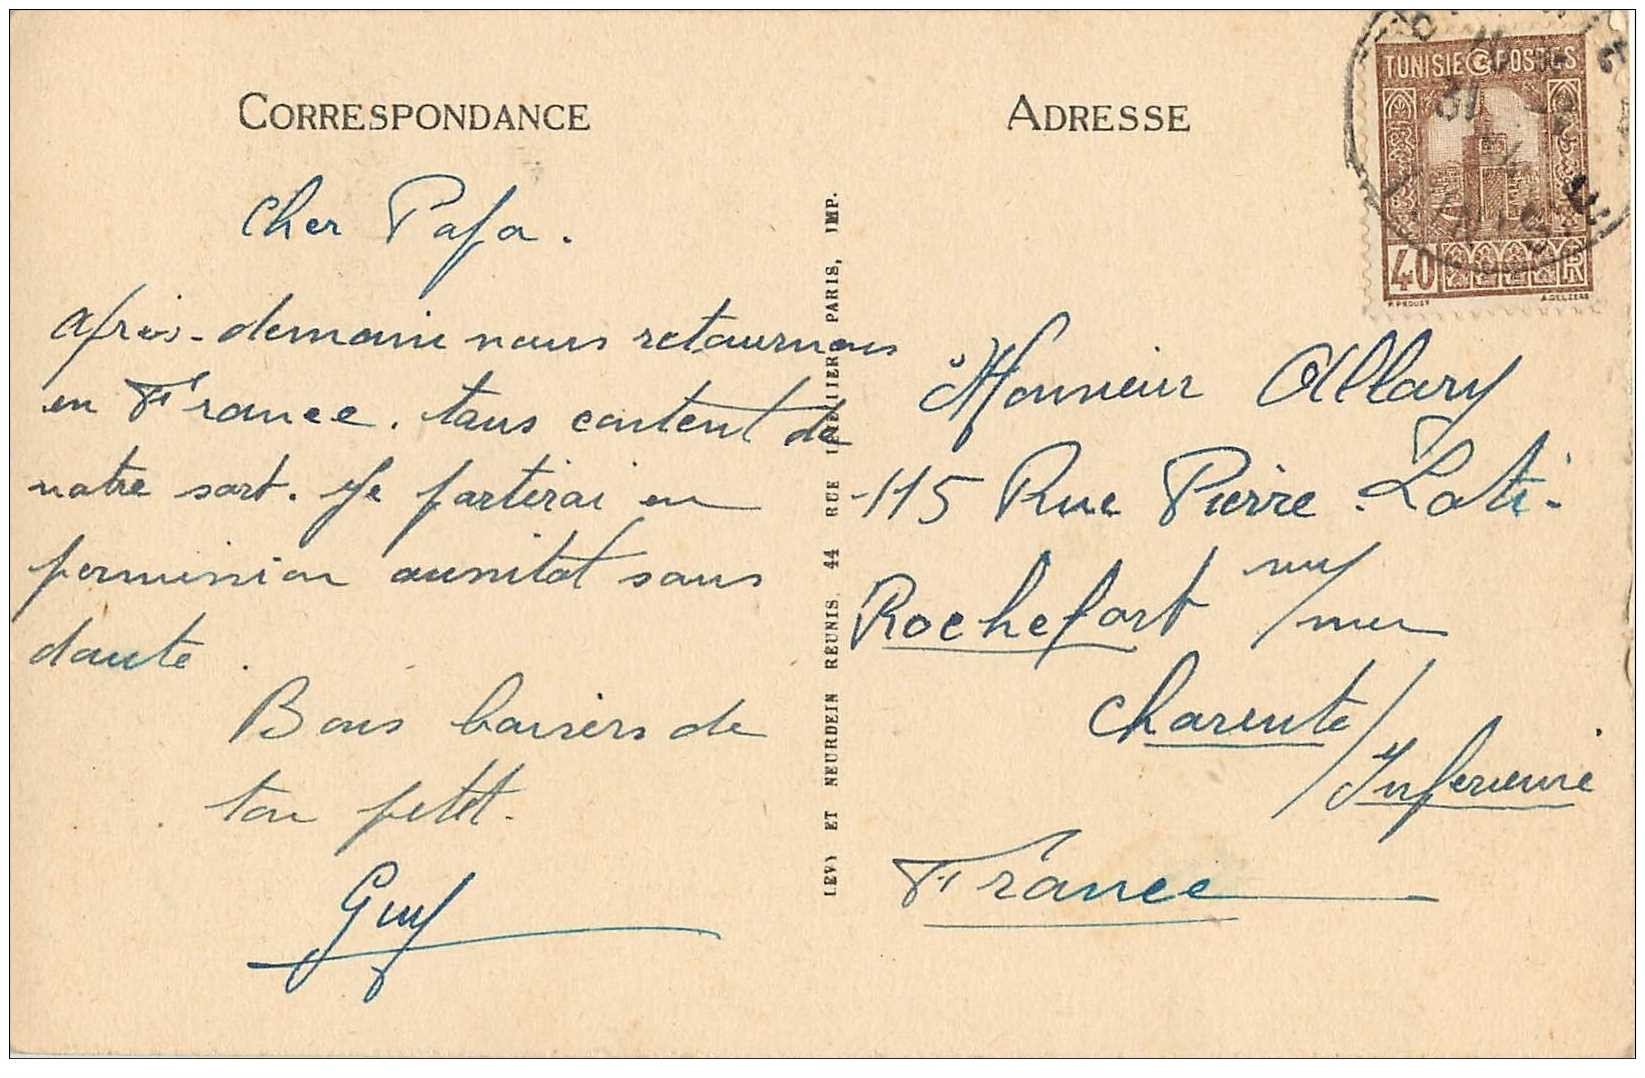 CORRESPONDANCE
Cher Papa.
après-demain nous retournons
en France. tous content de
notre sort. Je partirai en
permission aussitot sans
doute.
Bons baisers de
ton petit.
Guy
LEVY ET NEURDEIN REUNIS, 44 RUE LETELLIER, PARIS, IMP.
ADRESSE
TUNISIE POSTES
40 RF
P. PROUST A. DELZERS
Monsieur Allary
115 Rue Pierre-Loti-
Rochefort sur/mer
Charente/
Inferieure
France